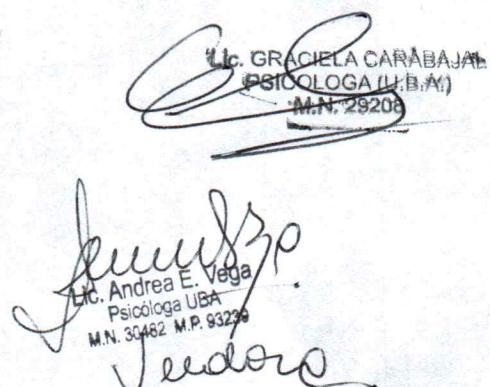 Lic. GRACIELA CARABAJAL
PSICOLOGA (U.B.A.)
M.N. 29208
Lic. Andrea E. Vega
Psicóloga UBA
M.N. 30482 M.P. 93239